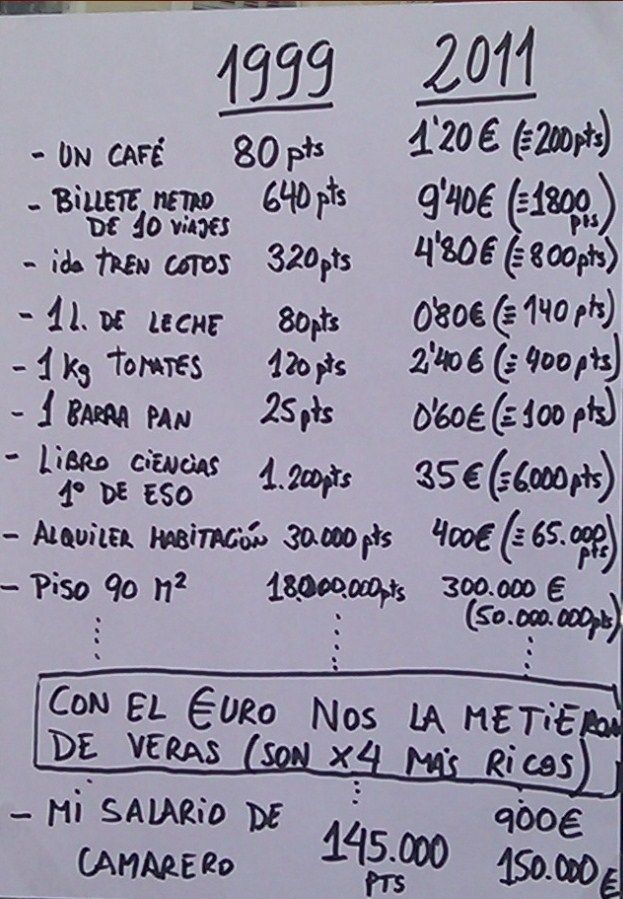 1999 2011
- UN CAFÉ 80 pts 1'20 € (≡200pts)
- BILLETE METRO 640 pts 9'40€ (≡1800
DE 10 VIAJES pts)
- ida TREN COTOS 320pts 4'80€ (≡800pts)
- 1 L. DE LECHE 80pts 0'80€ (≡140 pts)
- 1 Kg TOMATES 120 pts 2'40 € (≡400 pts)
- 1 BARRA PAN 25 pts 0'60€ (≡100 pts)
- LIBRO CIENCIAS 1.200pts 35€ (≡6.000pts)
1º DE ESO
- ALQUILER HABITACIÓN 30.000 pts 400€ (≡65.000
pts)
- PISO 90 M² 18.000.000pts 300.000 €
(50.000.000pts)
CON EL €URO NOS LA METIERON
DE VERAS (SON X4 MÁS RICOS)
- MI SALARIO DE 900€
CAMARERO 145.000 150.000 €
PTS